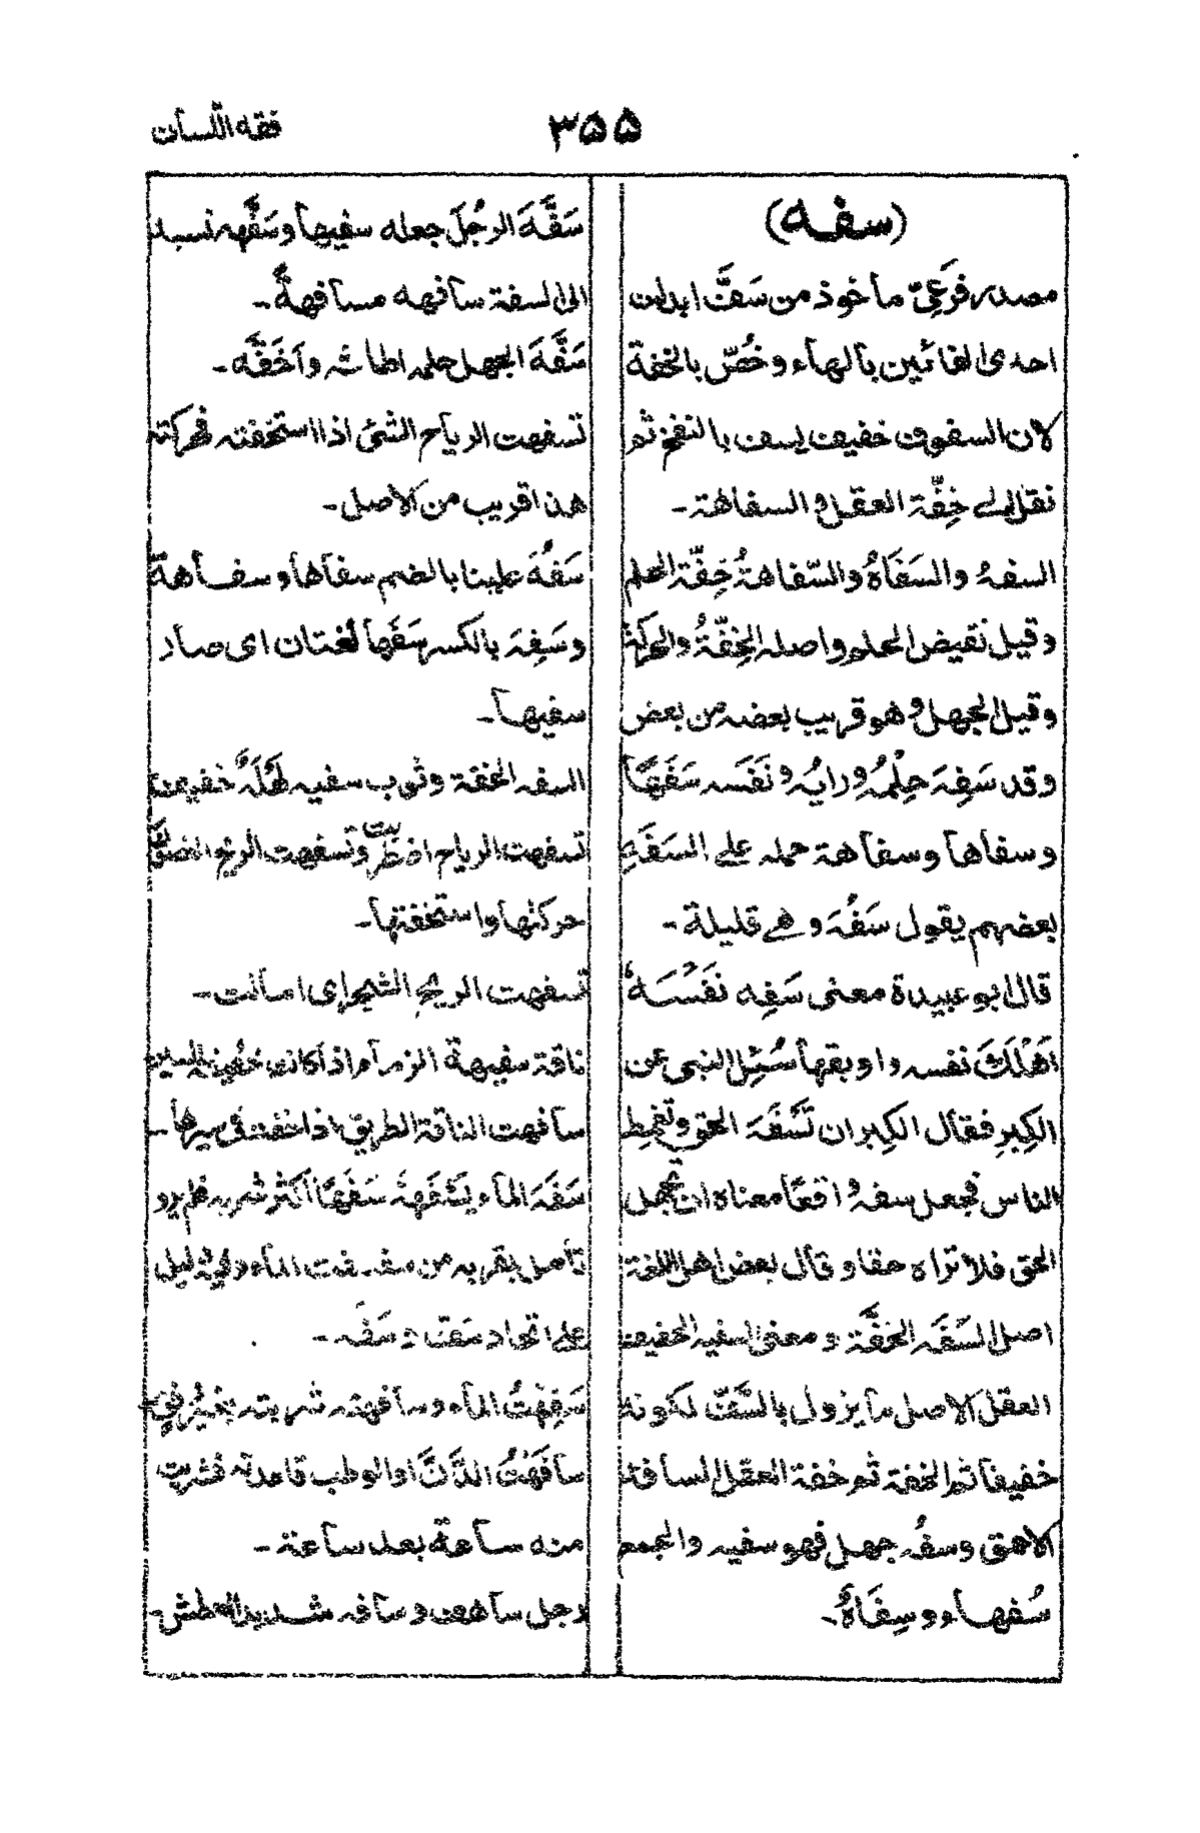 فقه اللّسان
۳۵۵
(سفه)
مصدر فَرعِیّ ماخوذ من سَفَّ ابدلت
احدی الفائین بالهاء وخُصّ بالخفة
لان السفوف خفیف یسف بالنفخ ثم
نقل الی خِفّة العقل والسفاهة۔
السفهُ والسَفَاهُ والسّفاهةُ خِفّة الحلم
وقیل نقیض الحلم واصله الخِفّةُ والحرکة
وقیل الجهل وهو قریب بعضه من بعض
وقد سَفِهَ حِلْمُهُ ورایُه ونَفَسَه سَفَهًا
وسفاها وسفاهة حمله علی السَفَهِ
بعضهم یقول سَفُهَ وهی قلیلة۔
قال ابو عبیدة معنی سَفِه نَفْسَهٗ
اَهْلَكَ نفسه واوبقها سُئِل النبی عن
الکِبرِ فقال الکِبر ان تَسْفَهَ الحق وتغمط
الناس فجعل سفه واقعًا معناه ان تجهل
الحق فلا تراه حقا وقال بعض اهل اللغة
اصل السَفَه الخفَّة ومعنی السفیه الخفیف
العقل الاصل ما یزول بالسَّفّ لکونه
خفیفا ثم الخفة ثم خفة العقل السافه
الاحمق وسفُه جهل فهو سفیه والجمع
سُفهاء وسِفَاهٌ۔
سَفَّهَ الرجُلَ جعله سفیها وسَفَّهه نسبه
الی السفة سافهه مسافهةً۔
سَفَّهَ الجهل حلمه اطاشه واَخَفَّه۔
تسفهت الریاح الشئ اذا استخفته فحرکته
هذا قریب من الاصل۔
سَفُهَ علینا بالضم سفاها وسفاهة
وسَفِهَ بالکسر سَفَهاً لُغتان ای صار
سفیها۔
السفه الخفة وثوب سفیه لَهْلَهٌ خفیف
تسفهت الریاح اضطربت وتسفهت الریح الغصون
حرکتها واستخفتها۔
تسفهت الریح الشجر ای امالت۔
ناقة سفیهة الزمام اذا کانت خفیفة السیر
سافهت الناقة الطریق اذا خفت فی سیرها۔
سَفَهَ الماء یَسْفَههٗ سَفَهًا اکثر شربه فلم یرو
تامل بقربه من سففت الماء وفیه دلیل
علی اتحاد سَفّ وسَفَه۔
سَفِهْتُ الماء وسافهته شربته بغیر رفق
سافَهْتُ الدَّنَّ اوالوطب قاعدته فشربت
منه ساعة بعد ساعة۔
رجل ساهف وسافه شدید العطش۔